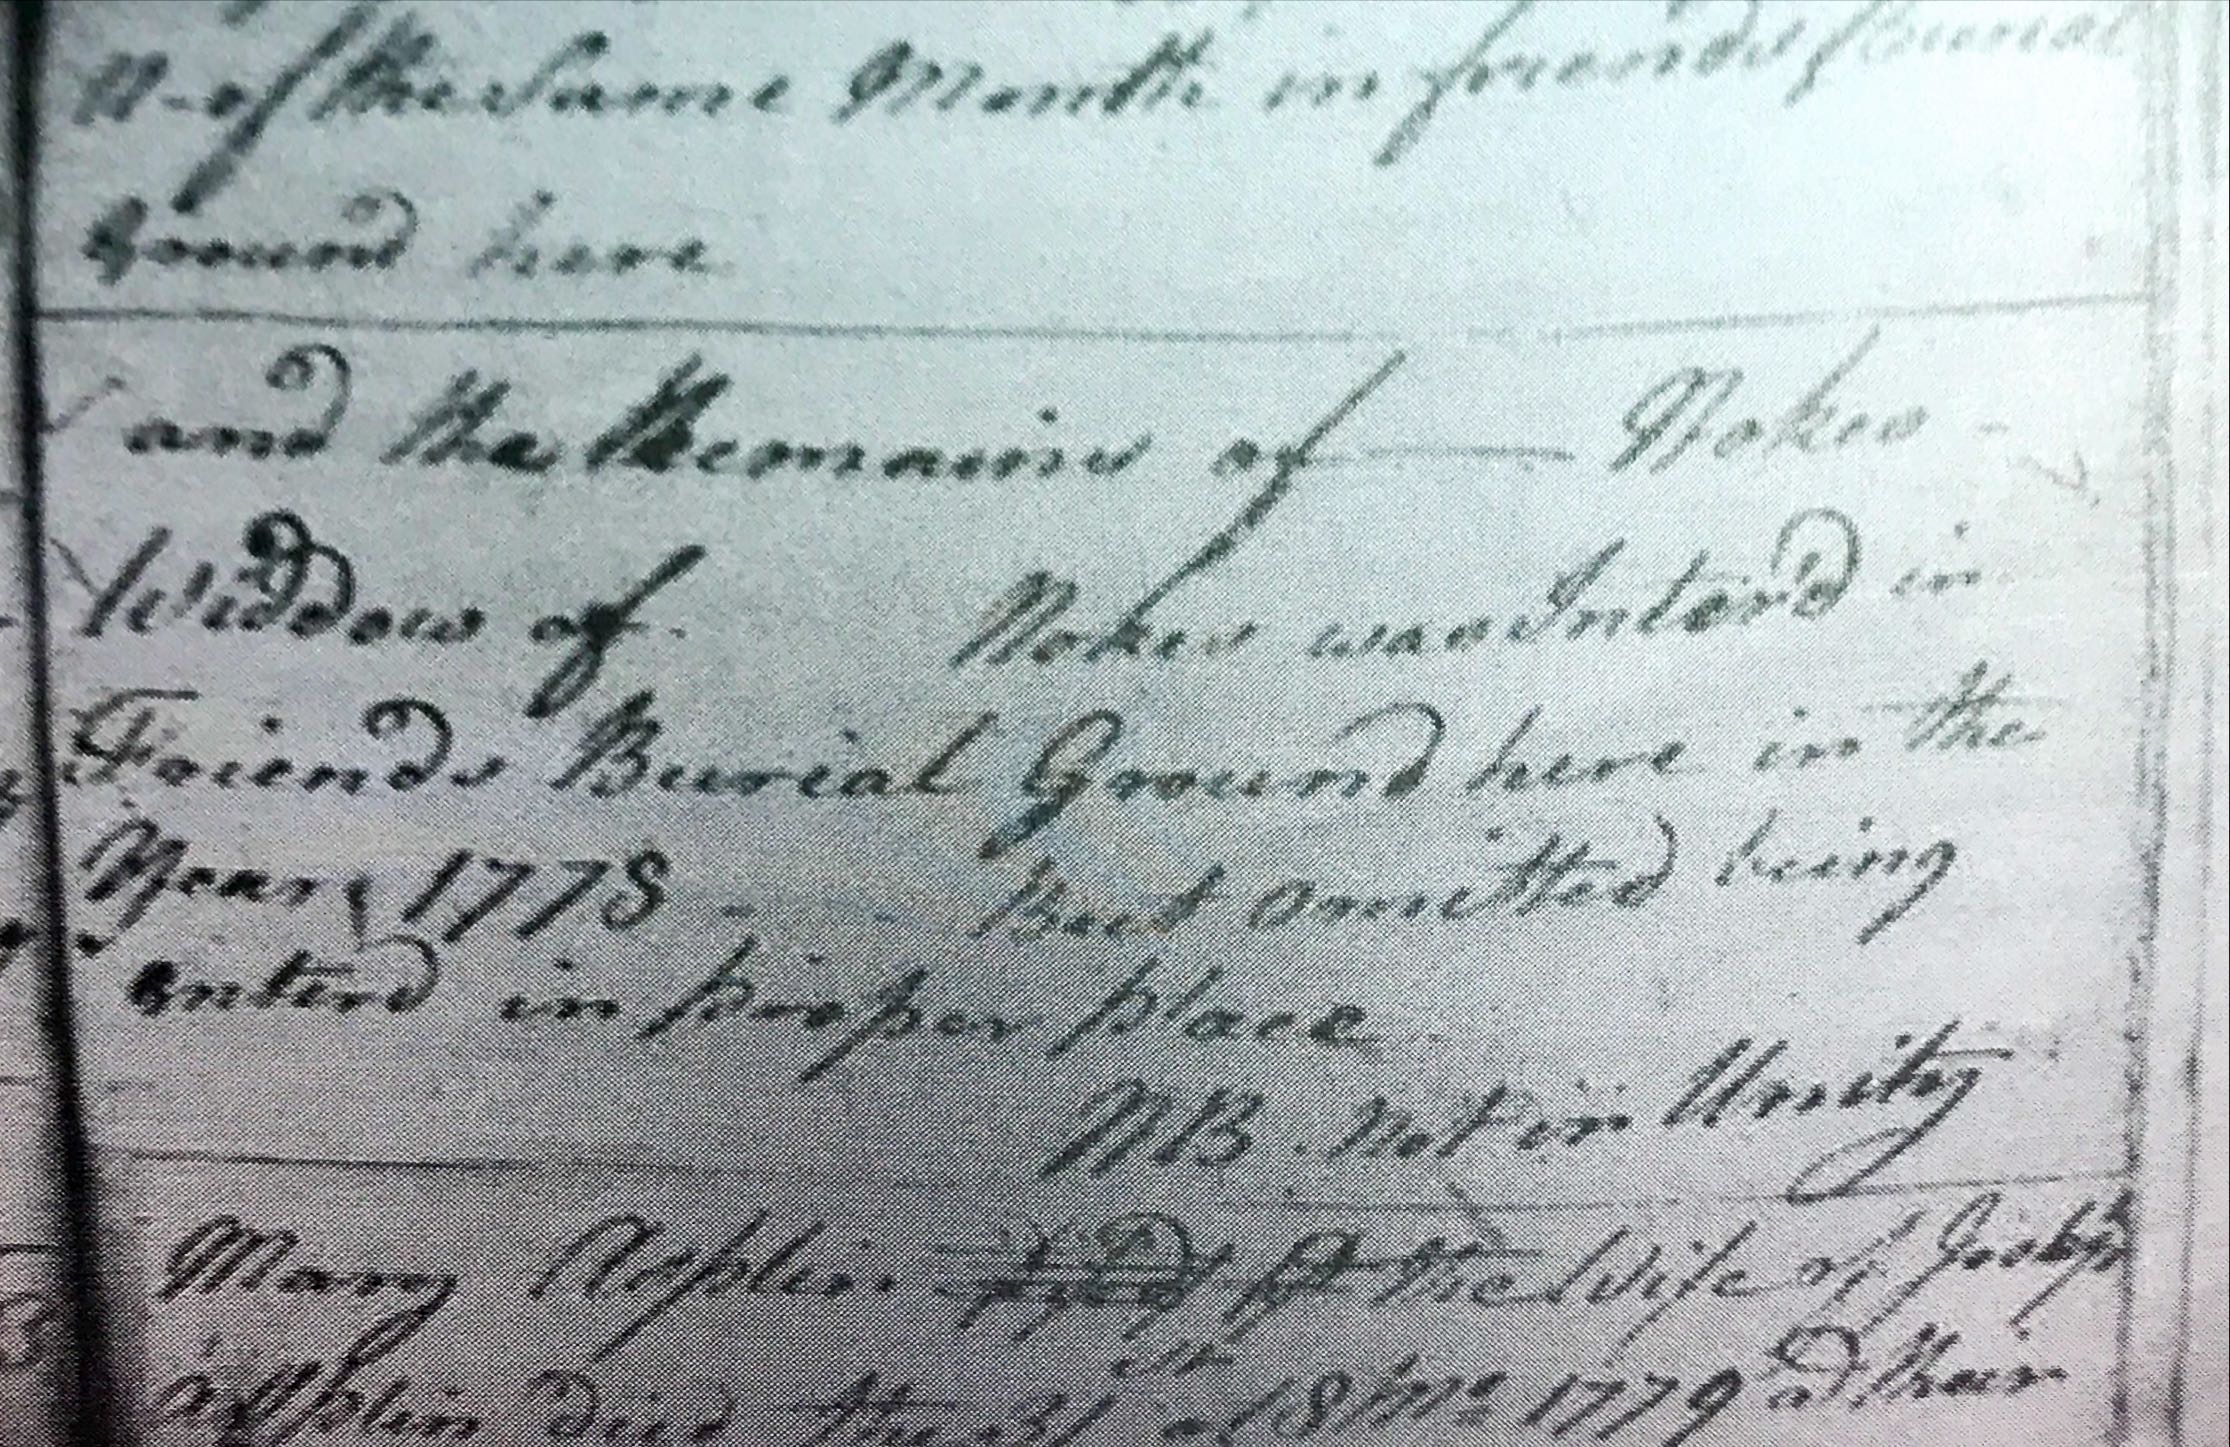 of the Same Month in friends burial
Ground here
and the Remains of —— Nokes -
Widdow of. Nokes was Interd in
Friends Burial Ground here in the
Year, 1778 - But omitted being
Enterd in proper place
NB. Not in Unity
Mary Asplin the Wife of Joseph
Asplin died the 31st of 8 mo 1779 at their